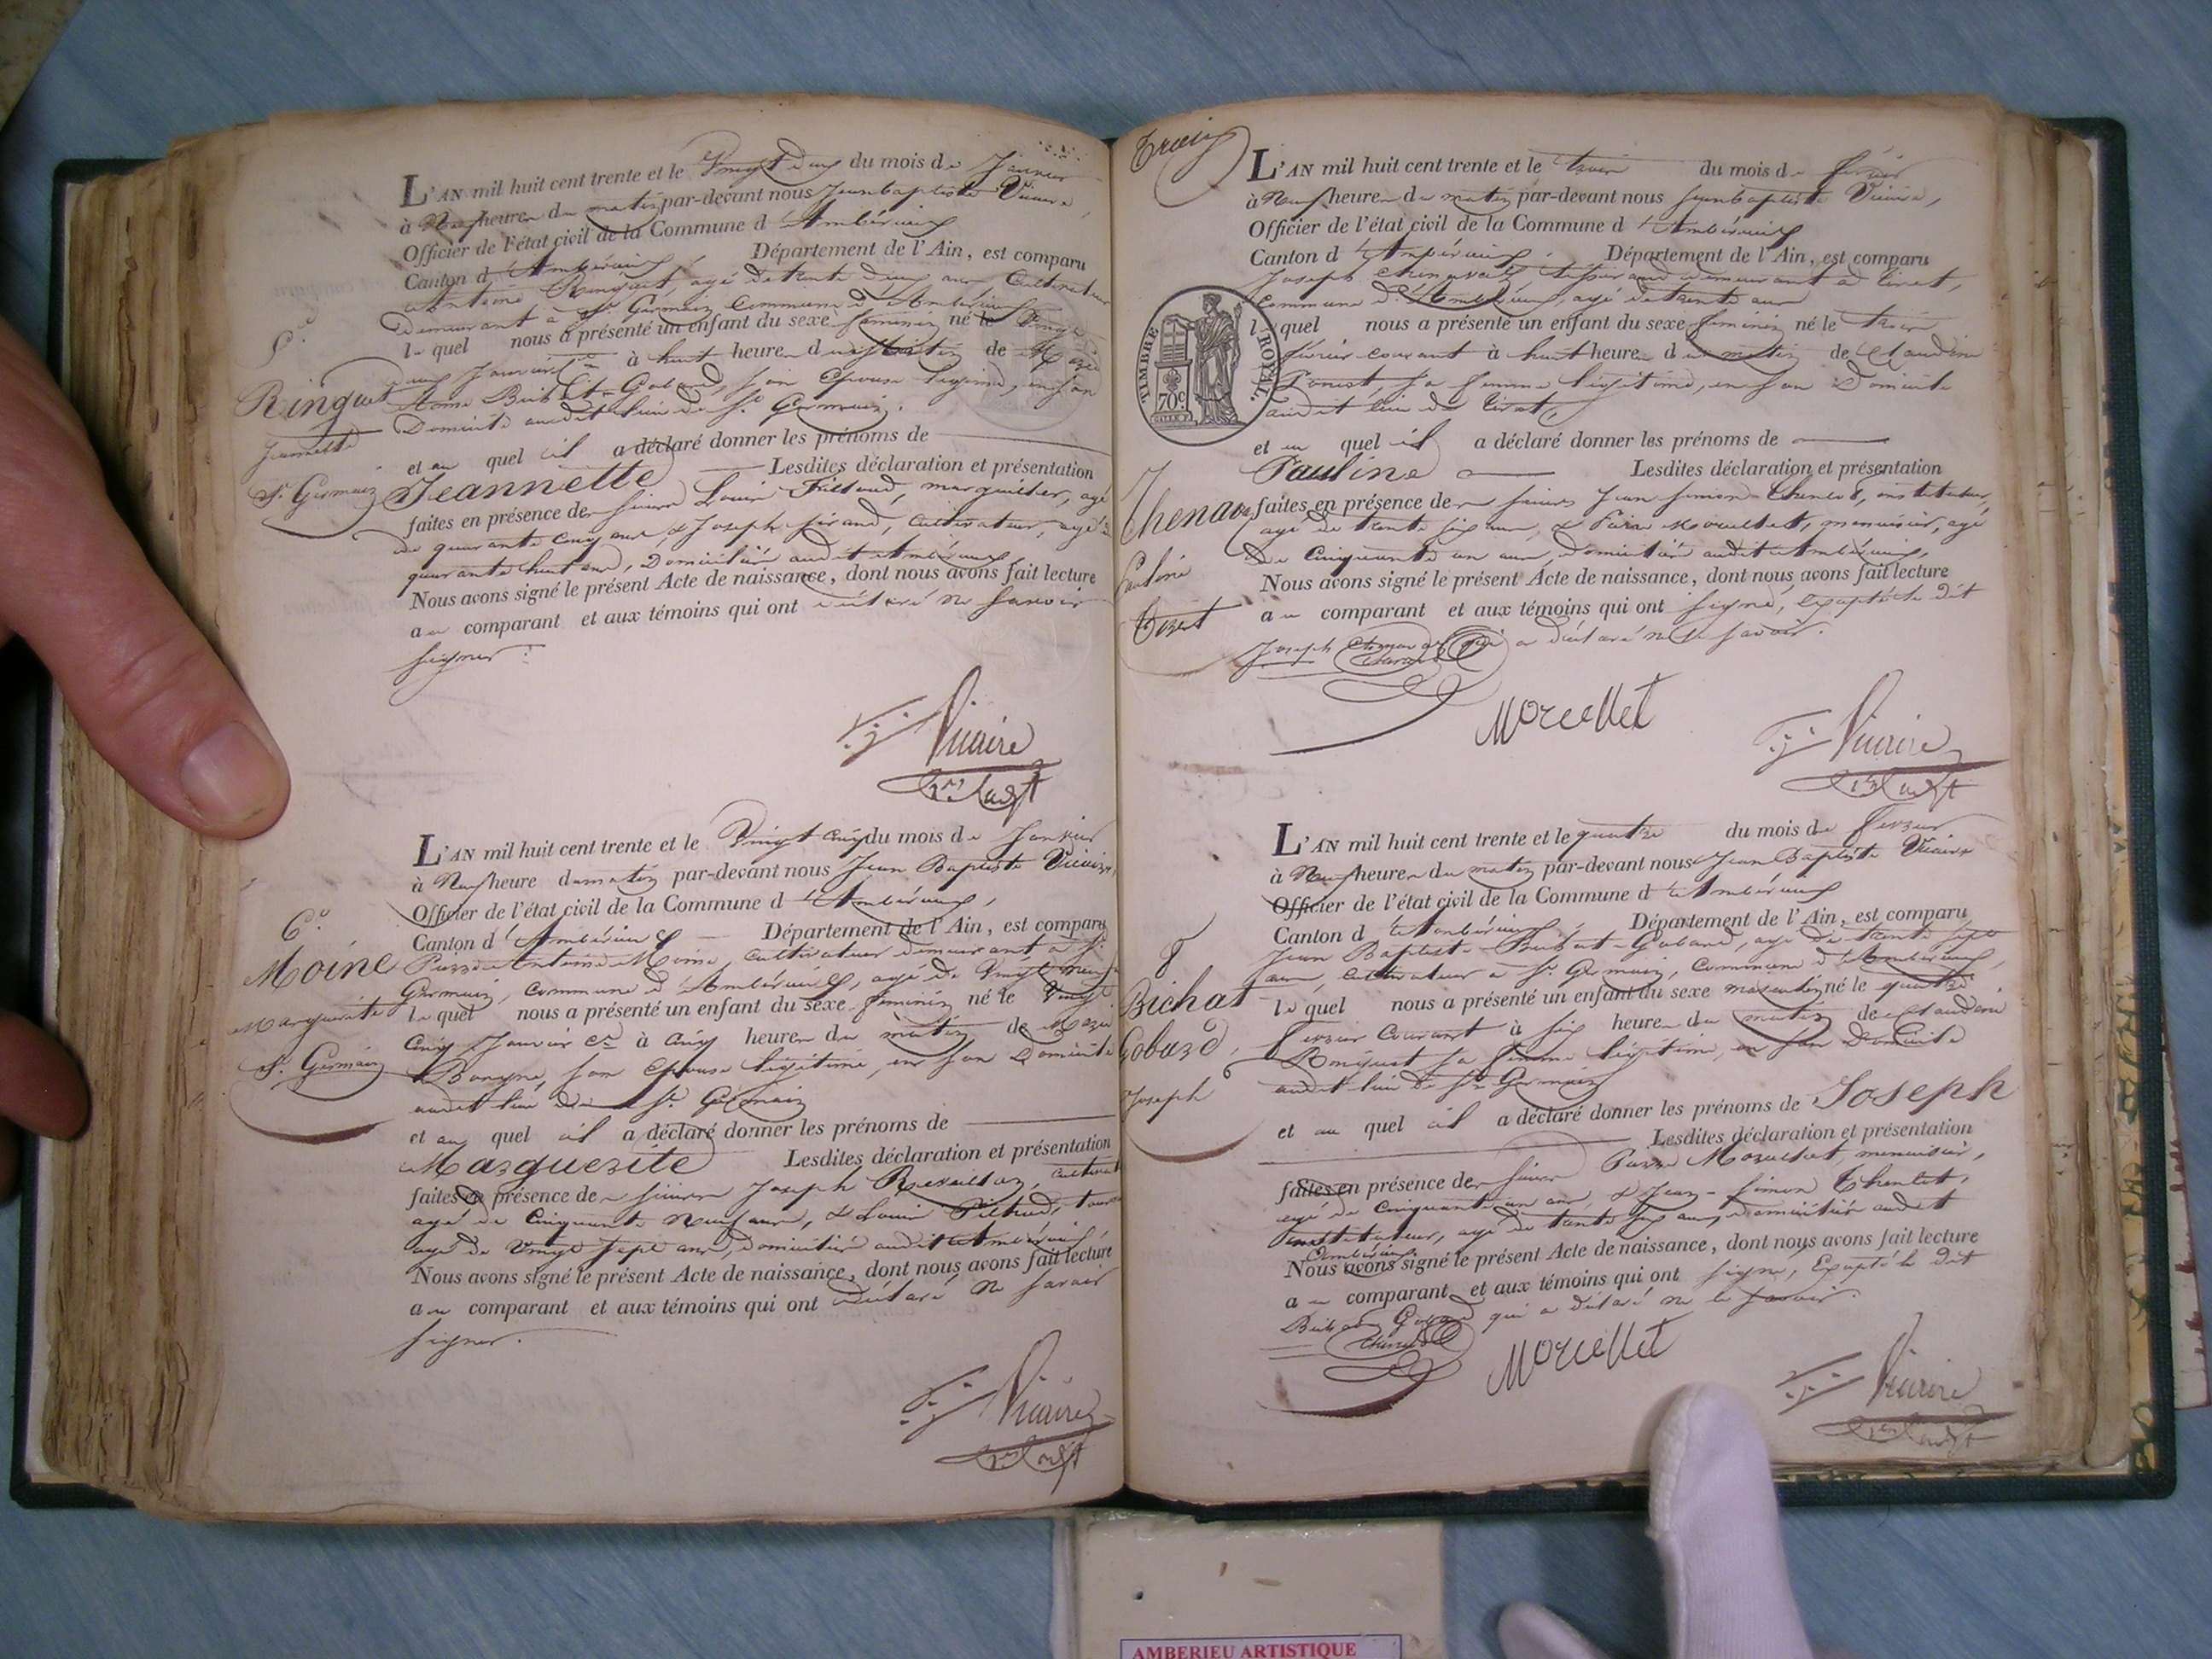 L'AN mil huit cent trente et le Vingt deux du mois de Janvier
à Neuf heures du matin par-devant nous Jean baptiste Vicaire,
Officier de l'état civil de la Commune d'Ambérieux
Canton d'Ambérieux, Département de l'Ain, est comparu
Antoine Ringuet, agé de trente deux ans Cultivateur
Demeurant à St Germain Commune d'Ambérieux
5e.
lequel nous a présenté un enfant du sexe feminin né le Vingt
deux Janvier à huit heures du matin de
Ringuet
Bichat-Gobard, son Epouse légitime, en son
Domicile audit lieu de St Germain.
Jeannette
et au quel il a déclaré donner les prénoms de
St Germain
Jeannette Lesdites déclaration et présentation
faites en présence de sieurs Louis Tillaud, marguiller, agé
de quarante cinq ans & Joseph, Cultivateur, agé de
quarante huit ans, Domiciliés audit Ambérieux
Nous avons signé le présent Acte de naissance, dont nous avons fait lecture
au comparant et aux témoins qui ont déclaré ne savoir
signer.
Vicaire
L'AN mil huit cent trente et le Vingt cinq du mois de Janvier
à Neuf heure du matin par-devant nous Jean Baptiste Vicaire,
Officier de l'état civil de la Commune d'Ambérieux,
6e.
Canton d'Ambérieux Département de l'Ain, est comparu
Moine
Pierre Antoine Moine, cultivateur demeurant à St
Germain, Commune d'Ambérieux, agé de Vingt neuf
Marguerite
lequel nous a présenté un enfant du sexe feminin né le Vingt
Cinq Janvier Ct à Cinq heures du matin de
St Germain
son Epouse légitime, en son Domicile
audit lieu de St Germain
et au quel il a déclaré donner les prénoms de
Marguerite Lesdites déclaration et présentation
faites en présence de sieurs Joseph Revillon, Cultivateur
agé de Cinquante Neuf ans, & Louis
agé de Vingt Sept ans, domiciliés audit Ambérieux,
Nous avons signé le présent Acte de naissance, dont nous avons fait lecture
au comparant et aux témoins qui ont Déclaré Ne savoir
signer.
Vicaire
L'AN mil huit cent trente et le trois du mois de février
à Neuf heures du matin par-devant nous Jean baptiste Vicaire,
Officier de l'état civil de la Commune d'Ambérieux
Canton d'Ambérieux, Département de l'Ain, est comparu
Joseph Chenavat, demeurant à Tiret,
Commune d'Ambérieux, agé de trente ans
TIMBRE ROYAL.
70c
lequel nous a présenté un enfant du sexe feminin né le trois
février courant à huit heures du matin de Claudine
sa femme légitime, en son Domicile
audit lieu de Tiret,
et au quel il a déclaré donner les prénoms de
Pauline Lesdites déclaration et présentation
faites en présence de sieurs Jean Simon Chenlet, instituteur,
agé de trente six ans, & Pierre Morcellet, menuisier, agé
de Cinquante un ans, domiciliés audit Ambérieux,
Pauline
Nous avons signé le présent Acte de naissance, dont nous avons fait lecture
Tiret
au comparant et aux témoins qui ont signé, Excepté le dit
Joseph Chenavat qui a déclaré ne le savoir.
Morcellet
Vicaire
L'AN mil huit cent trente et le quatre du mois de fevrier
à Neuf heures du matin par-devant nous Jean Baptiste Vicaire
Officier de l'état civil de la Commune d'Ambérieux
8
Canton d'Ambérieux, Département de l'Ain, est comparu
Jean Baptiste Bichat-Gobard, agé de trente sept
ans, Cultivateur à St Germain, Commune d'Ambérieux,
Bichat
lequel nous a présenté un enfant du sexe masculin né le quatre
Gobard,
fevrier Courant à six heures du matin de Claudine
sa femme légitime, en son Domicile
Joseph
audit lieu de St Germain
et au quel il a déclaré donner les prénoms de Joseph
Lesdites déclaration et présentation
faites en présence de sieurs Pierre Morcellet, menuisier,
agé de Cinquante un ans, & Jean-Simon Chenlet,
instituteur, agé de trente six ans, domiciliés audit
Ambérieux.
Nous avons signé le présent Acte de naissance, dont nous avons fait lecture
au comparant et aux témoins qui ont signé, Excepté le dit
Bichat Gobard qui a déclaré ne le savoir.
Morcellet
Vicaire
AMBERIEU ARTISTIQUE